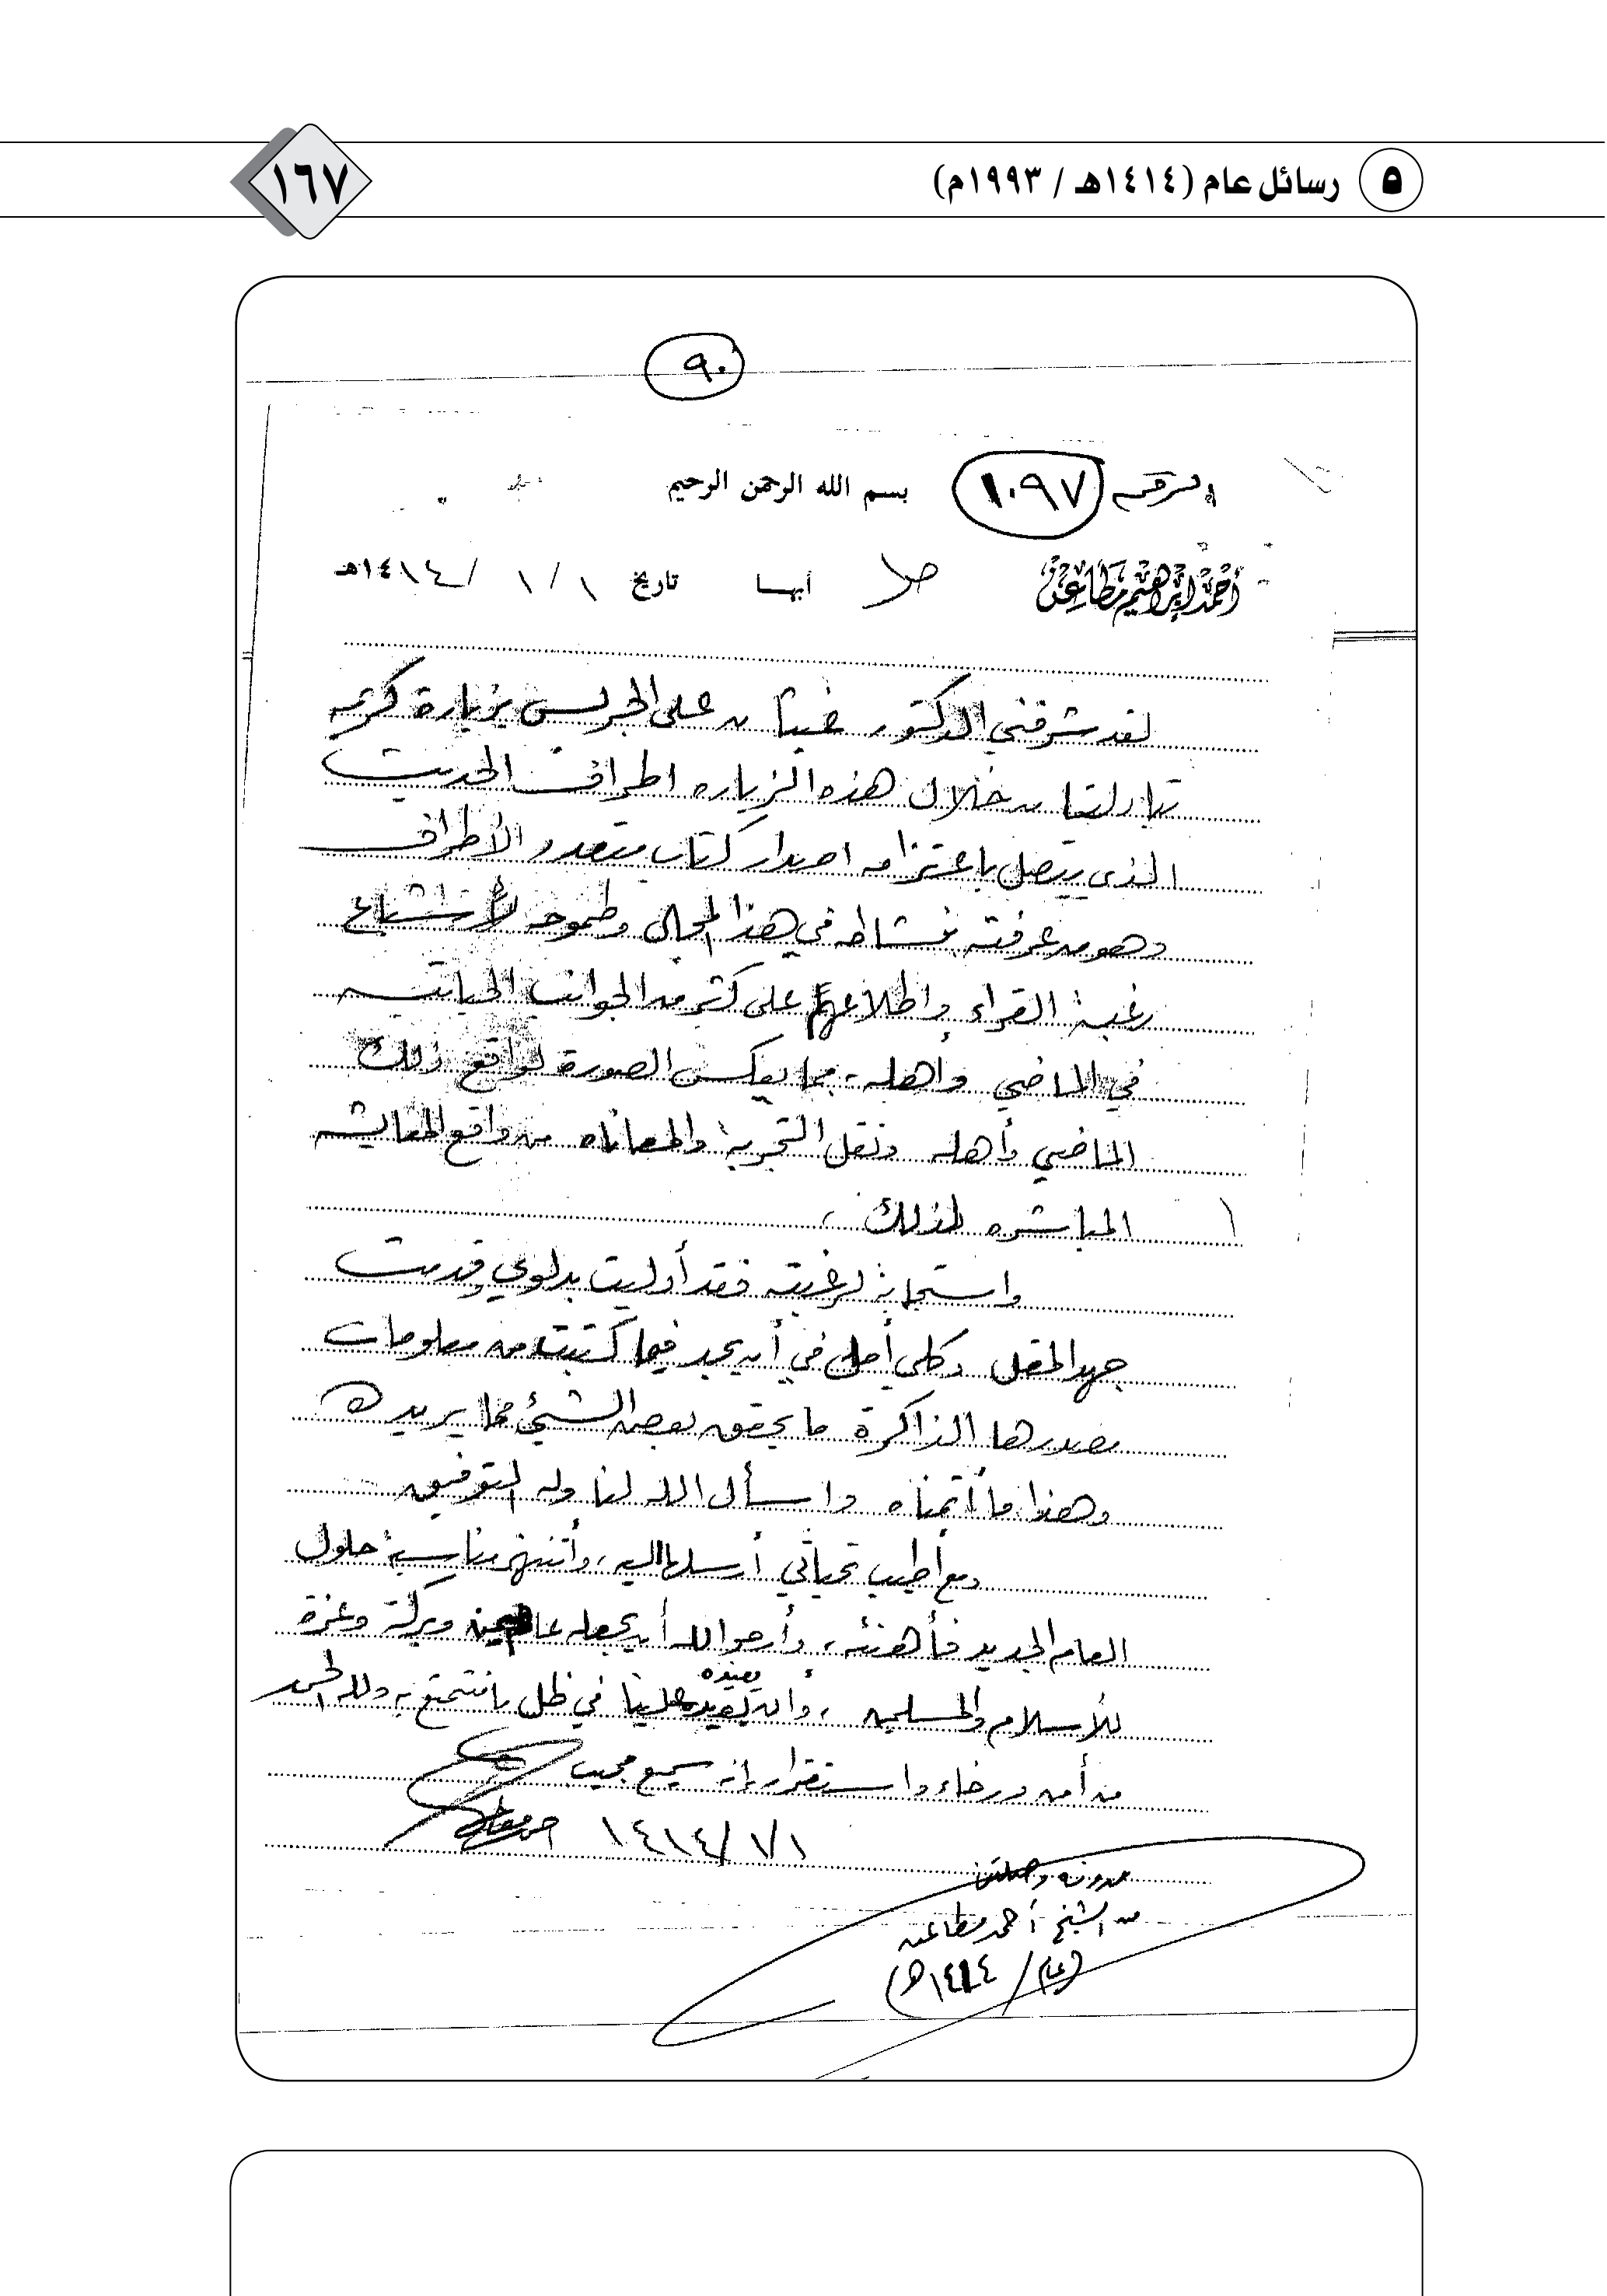 ٥ رسائل عام (١٤١٤هـ / ١٩٩٣م)
١٦٧
٩٠
الرقم ١٠٩٧ بسم الله الرحمن الرحيم
أحمد إبراهيم مطاعن أبها تاريخ ١ / ١ / ١٤١٤هـ
لقد شرفني الدكتور غيثان بن علي الجريس بزيارة كريمه
تبادلنا من خلال هذه الزياره اطراف الحديث
الذي يتصل باعتزامه اصدار كتاب متعدد الأطراف
وهو من عرفته بنشاطه في هذا المجال وطموحه لأشباع
رغبة القراء واطلاعهم على كثير من الجوانب الحياتيه
في الماضي وأهله، مما يعكس الصورة لواقع ذلك
الماضي وأهله ونقل التجربة والمعاناه من واقع المعايشه
المباشره لذلك،
واستجابة لرغبته فقد أدليت بدلوي وقدمت
جهد المقل وكلي أمل في أن يجد فيما كتبت من معلومات
مصدرها الذاكرة ما يحقق بعض الشيئ مما يريده
وهذا ما أتمناه واسأل الله لنا وله التوفيق
ومع أطيب تحياتي أرسلها اليه، وأنتهز مناسبة حلول
العام الجديد فأهنئه، وأرجو الله أن يجعله عام وبركة وعزة
للأسلام والمسلمين، وان يعيده علينا في ظل ما نتمتع به ولله الحمد
من أمن ورخاء واستقرار إنه سميع مجيب
١/١/١٤١٤ أحمد مطاعن
مدونه وصلتني
من الشيخ أحمد مطاعن
(عام / ١٤١٤هـ)